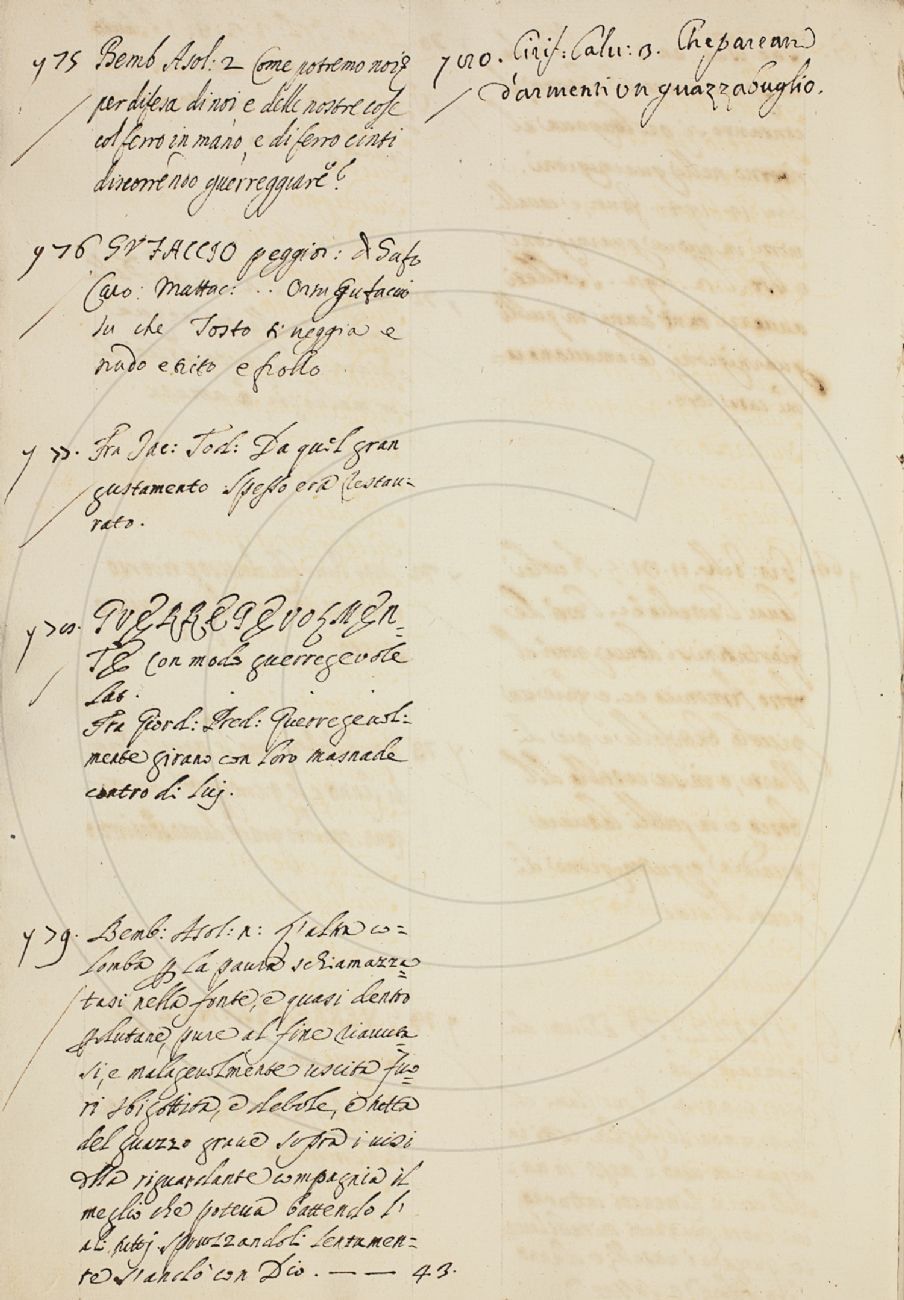 y 75 Bemb Asol: 2 Come potremo noi p
per difesa di noi e delle nostre cose
col ferro in mano, e di ferro cinti
discorrendo guerreggiare?
y 76 GUFACCIO peggior: d Gufo
Caro: Mattac: .. Gufaccio
fu che Tosto ti veggia e
nudo e trito e frollo
y 77. Fra Jac: Tod: Da quel gran
gustamento spesso era restau-
rato.
y 78. GUERREGEVOLMEN-
TE Con modo guerregevole
Lat.
Fra Giord: Pred: Guerregevol-
mente girano con loro masnade
contro di lui.
y 79. Bemb: Asol: 1: L'altra co-
lomba p la paura schiamazza-
tasi nella fonte, e quasi dentro
pure al fine riavuta
si, e malagevolmente uscita fuo-
ri sbigottita, e debole, e tutta
del guazzo grave sopra i visi
dlla riguardante compagnia il
meglio che poteva battendo l'
ali, tutti spruzzandoli lentamen-
te s'andò con Dio. — — 43.
y 80. Cirif: Calv: 3. Che parean
d'armenti un guazzabuglio.